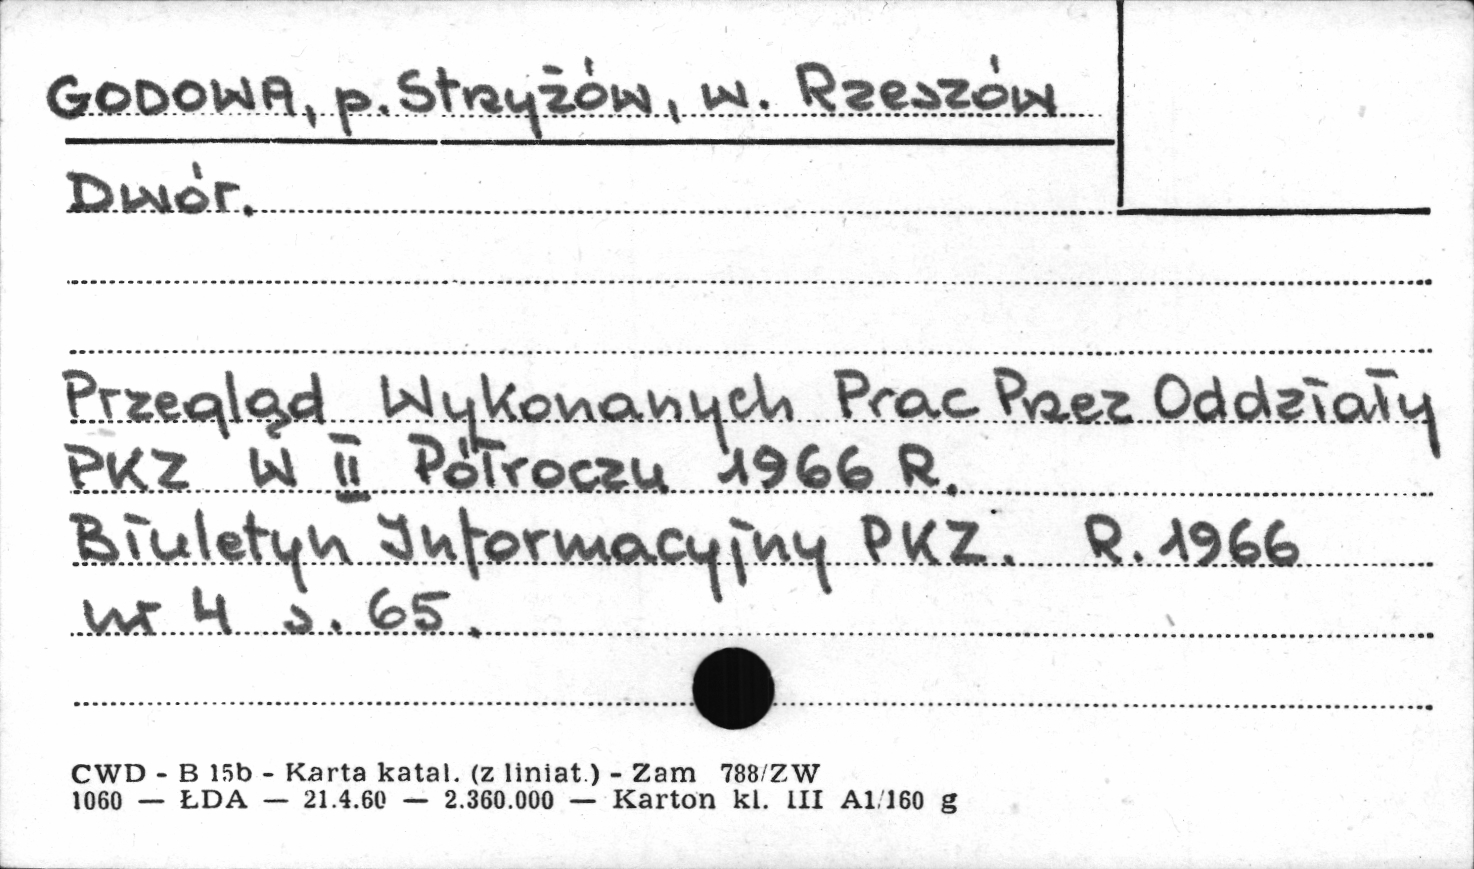 GODOWA, p. Strzyżów, w. Rzeszów
Dwór.
Przegląd Wykonanych Prac Przez Oddziały
PKZ W II Półroczu 1966 R.
Biuletyn Informacyjny PKZ. R. 1966
nr 4 s. 65.
CWD - B 15b - Karta katal. (z liniat.) - Zam 788/ZW
1060 — ŁDA — 21.4.60 — 2.360.000 — Karton kl. III A1/160 g